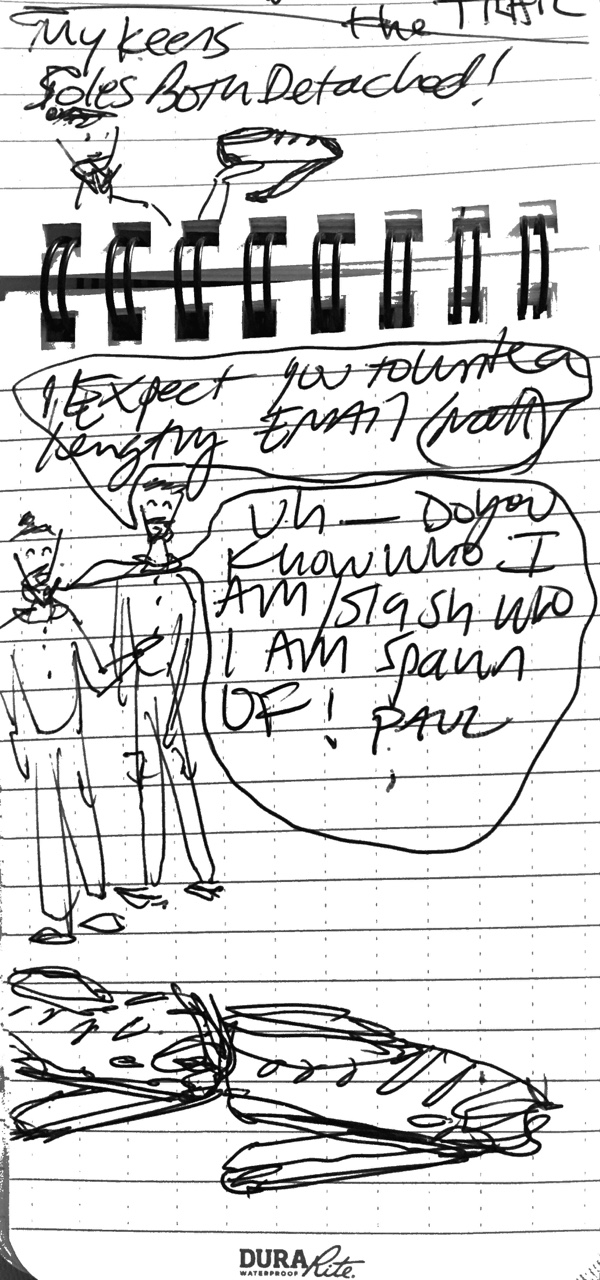 the TRAIL
My Keens
Soles Both Detached!
I Expect you to write a
Lengthy EMAIL (Matt)
Uh — Do you
Know who I
AM / slash who
I AM spawn
OF! PAUL
DURA Rite.
WATERPROOF